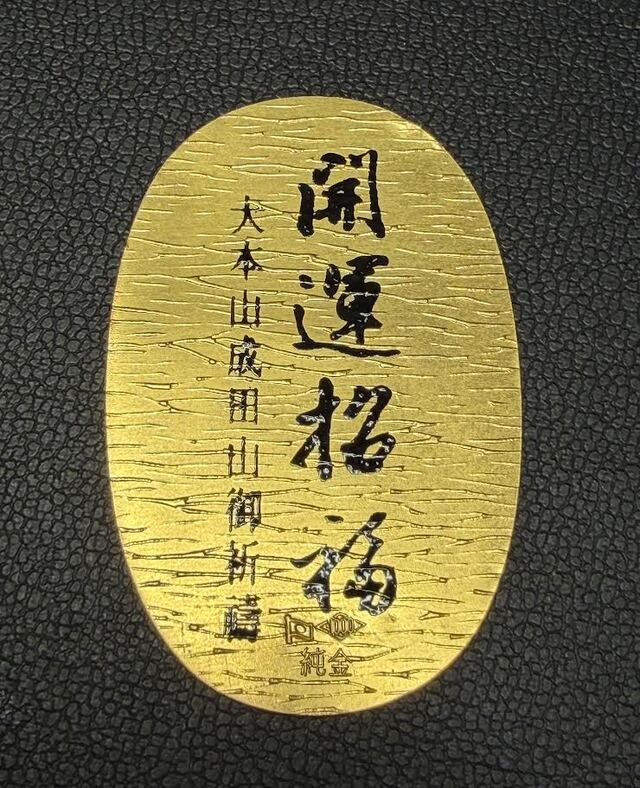 開運招福
大本山成田山御祈禱
純金